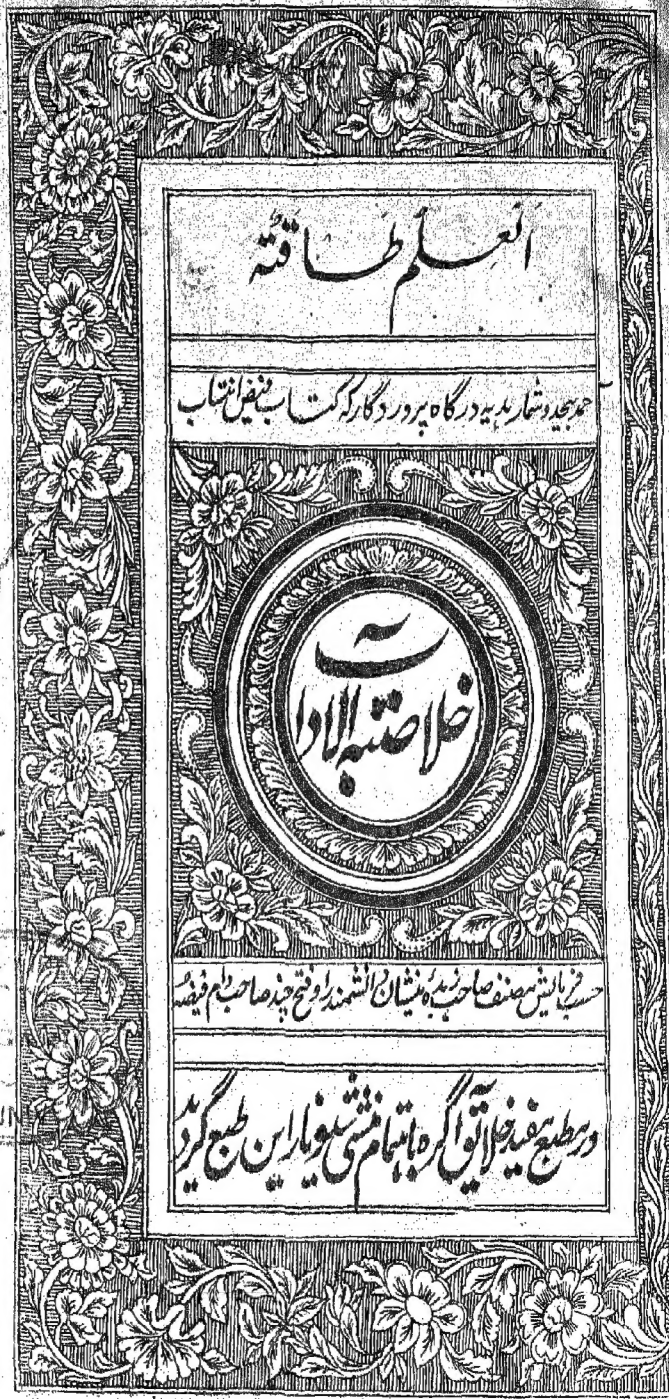 اَلعِلْمُ طَاقَتُهٗ
حمد بیحد و شمار ہدیہ درگاہ پروردگار کہ کتاب فیض انتساب
خلاصۃ الآداب
حسب فرمایش مصنف صاحب زبدۂ منشیان دانشمند راو فتح چند صاحب دام فیضہ
در مطبع مفید خلائق آگرہ باہتمام منشی شیو نراین طبع گردید